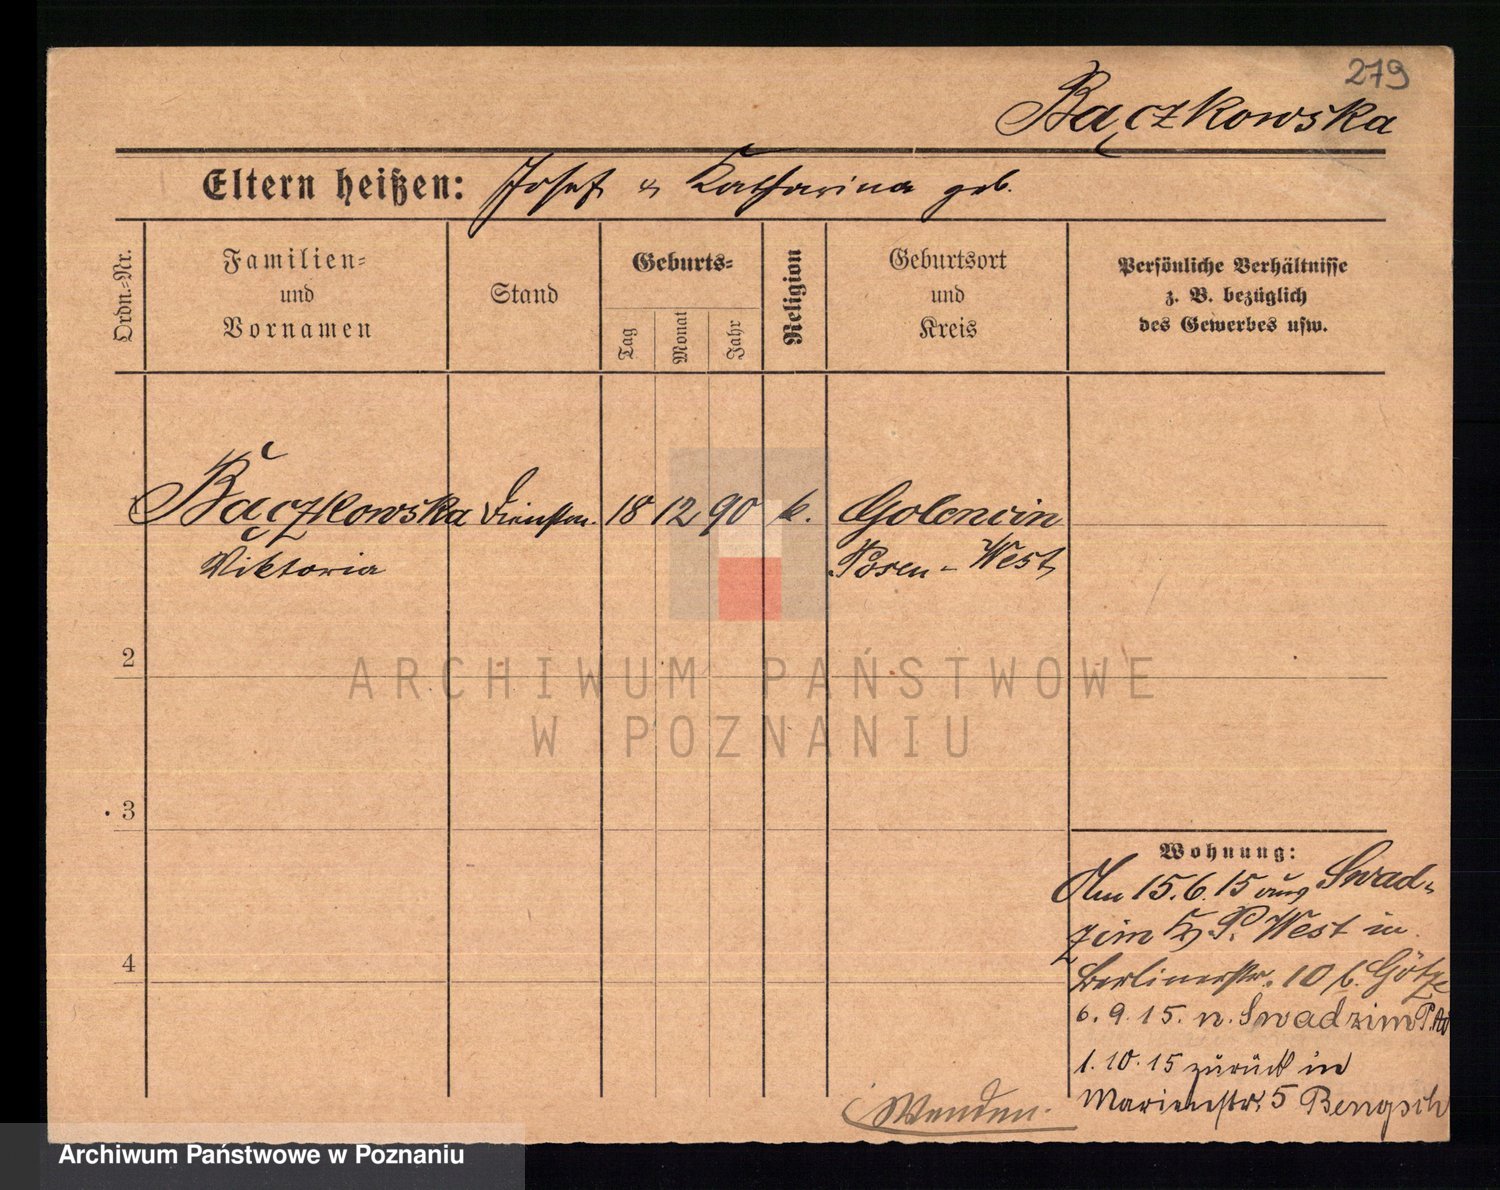 279
Bączkowska
Eltern heißen: Josef u Katharina geb.
Ordn.-Nr.
Familien-
und
Vornamen
Stand
Geburts-
Tag
Monat
Jahr
Religion
Geburtsort
und
Kreis
Persönliche Verhältnisse
z. B. bezüglich
des Gewerbes usw.
Bączkowska Dienstm. 18 12 90 k. Golencin
Viktoria Posen-West
2
ARCHIWUM PAŃSTWOWE
W POZNANIU
3
4
Wohnung:
Am 15.6.15 aus Swad-
zim Kr. P. West in
Berlinerstr. 10 b. Götze
6.9.15. n. Swadzim P.
1.10.15 zurück in
Marienstr. 5 Bengsch
Wenden.
Archiwum Państwowe w Poznaniu